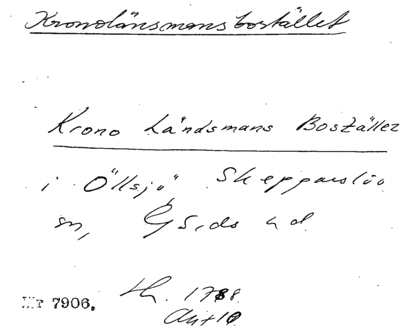 Kronolänsmansbostället
Krono Ländsmans Boställe
i Öllsjö, Skepparslöv
sn, Gärds hd.
Nr 7906. Lh. 1788
Akt 10